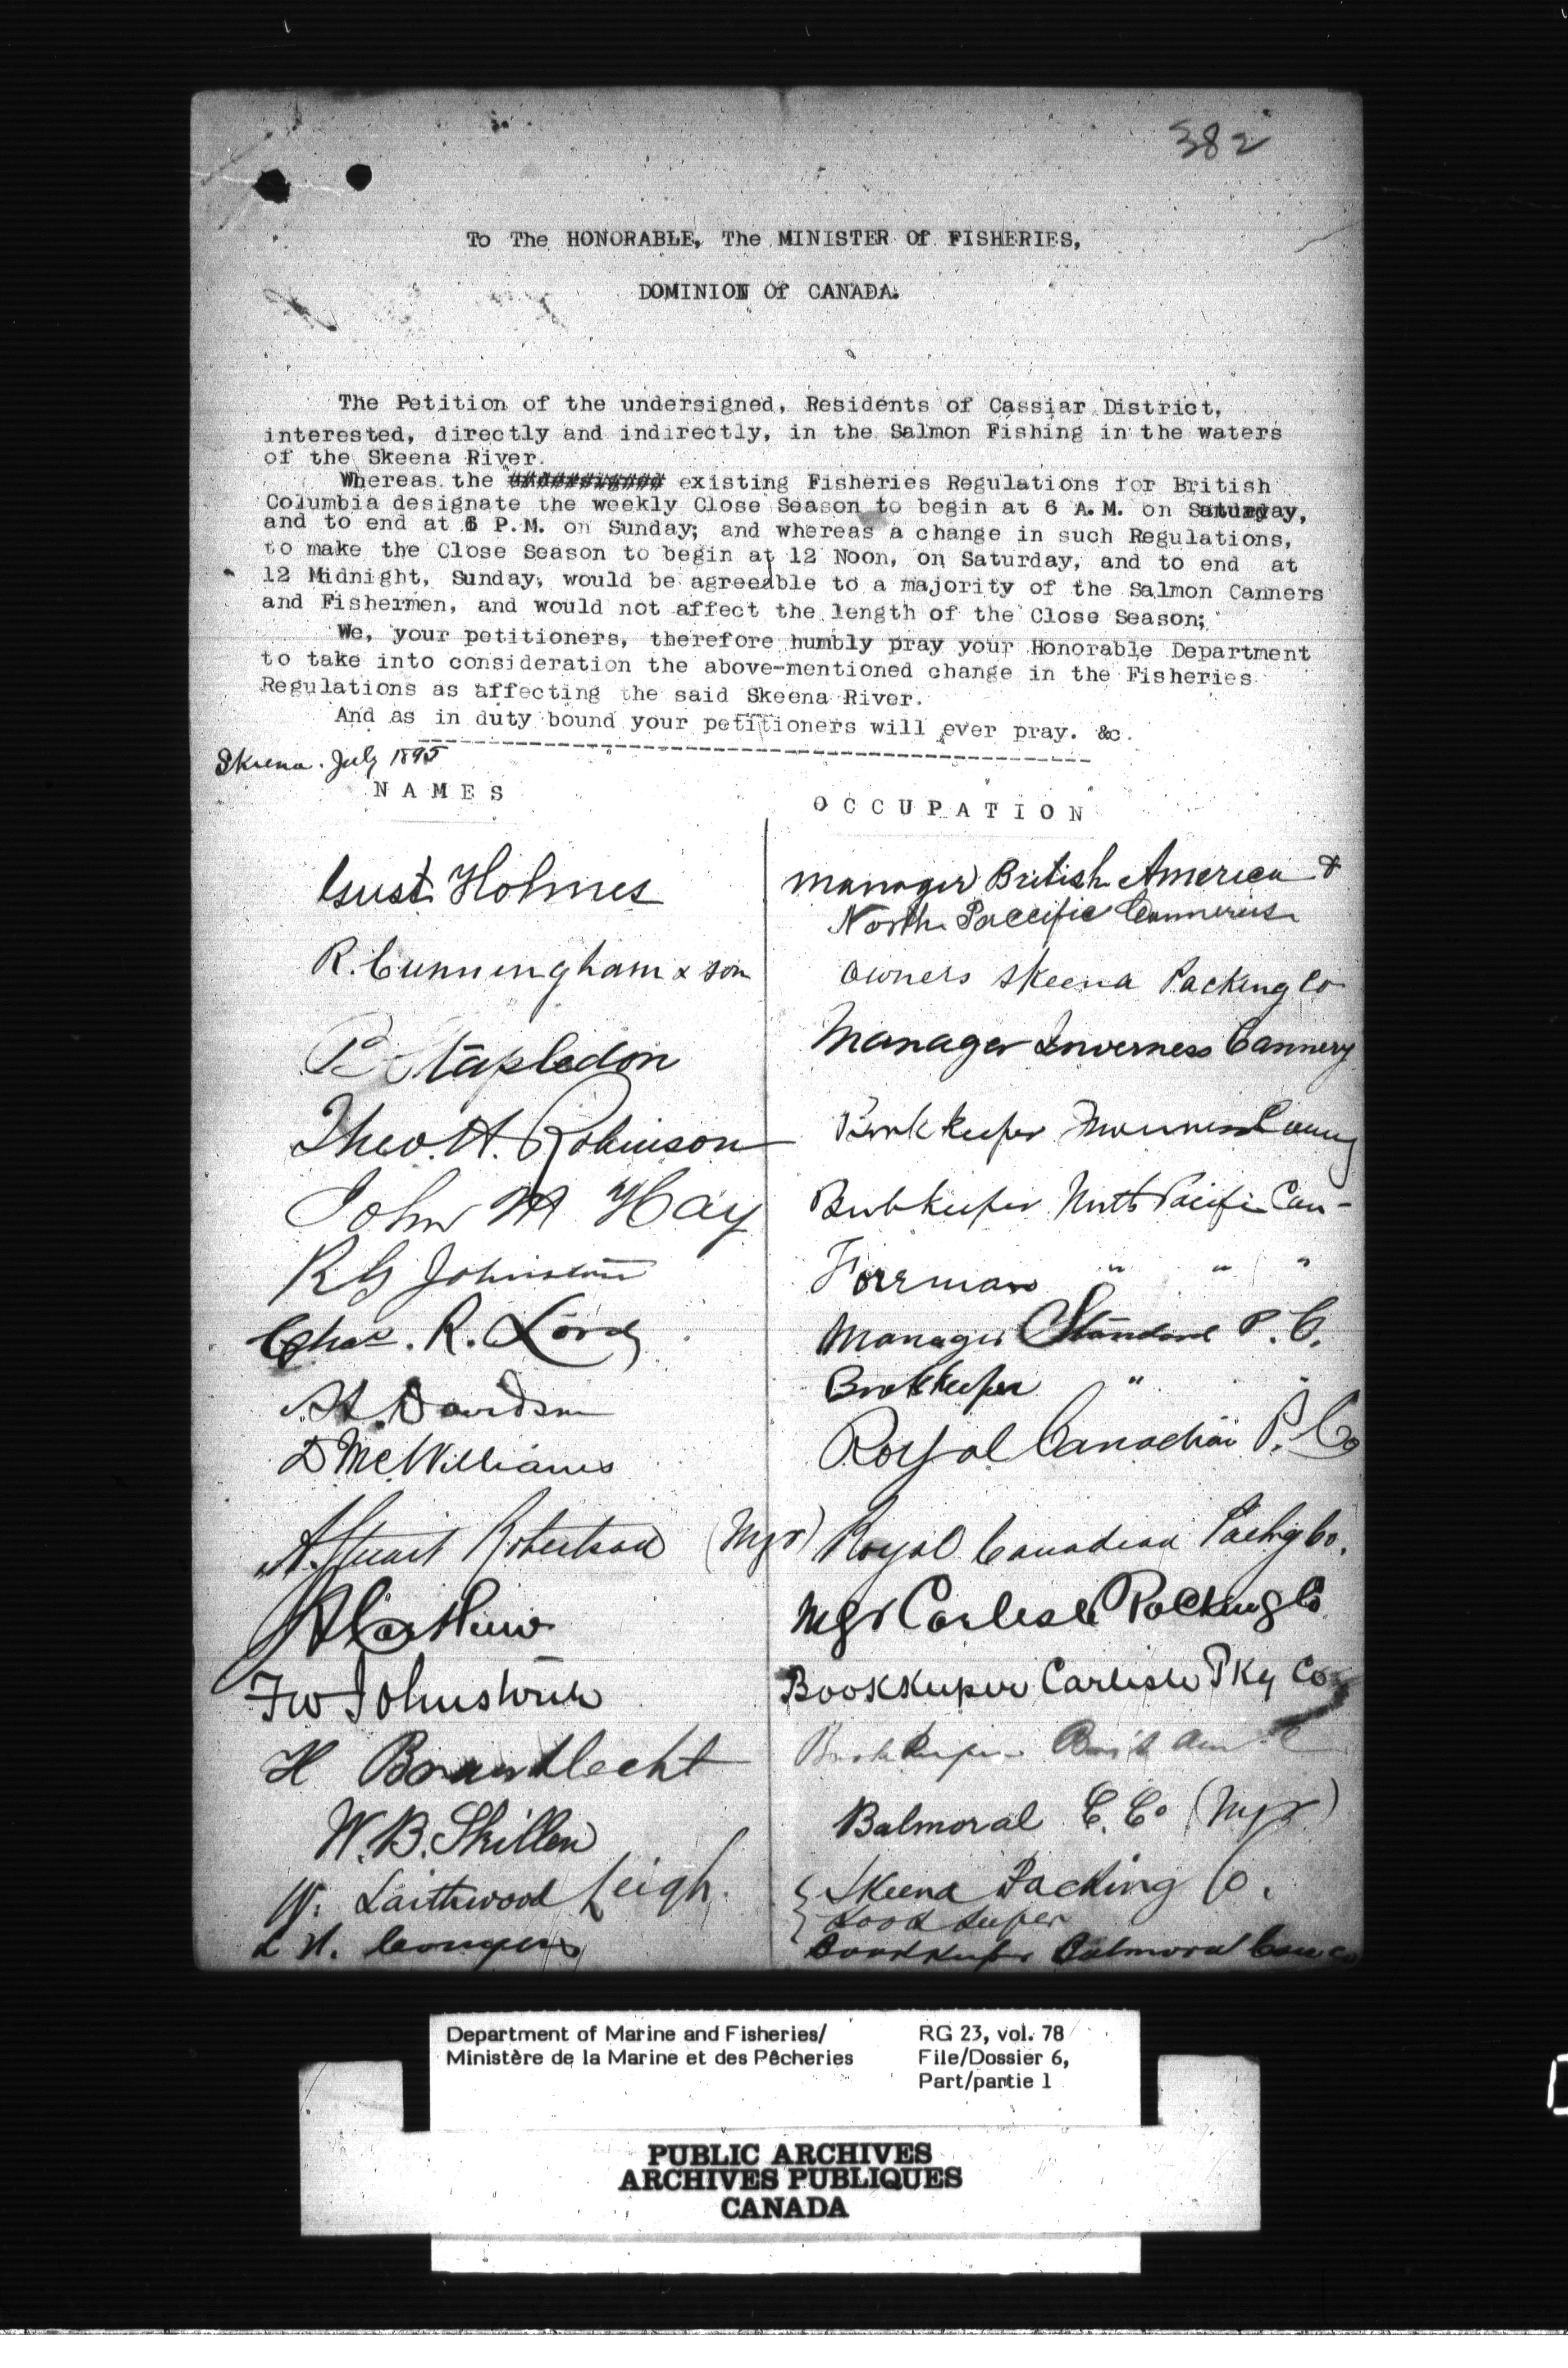 382
To The HONORABLE, The MINISTER Of FISHERIES,
DOMINION Of CANADA.
The Petition of the undersigned, Residents of Cassiar District,
interested, directly and indirectly, in the Salmon Fishing in the waters
of the Skeena River.
Whereas the existing Fisheries Regulations for British
Columbia designate the weekly Close Season to begin at 6 A.M. on Saturday,
and to end at 6 P.M. on Sunday; and whereas a change in such Regulations,
to make the Close Season to begin at 12 Noon, on Saturday, and to end at
12 Midnight, Sunday, would be agreeable to a majority of the Salmon Canners
and Fishermen, and would not affect the length of the Close Season;
We, your petitioners, therefore humbly pray your Honorable Department
to take into consideration the above-mentioned change in the Fisheries
Regulations as affecting the said Skeena River.
And as in duty bound your petitioners will ever pray. &c.
Skeena. July 1895
NAMES OCCUPATION
Gust Holmes manager British America &
North Paccific Canneries
R. Cunningham & son owners Skeena Packing Co
Stapledon Manager Inverness Cannery
Theo. H. Robinson Bookkeeper Inverness
John M Hay Bookkeeper North Pacific Can-
R G Johnston Foreman " " "
Chas. R. Lord Manager Standard P. C.
Davidson Bookkeeper " "
D McWilliams Royal Canadian P. Co
A. Stuart Robertson (Mgr) Royal Canadian Packg Co.
Mgr Carlisle Packing Co
FW Johnston Bookkeeper Carlisle Pkg Co
H Bookkeeper Brit Am
W. B. Skillen Balmoral C. Co (Mgr)
W. Laithwood Leigh. Skeena Packing Co.
Book keeper
Bookkeeper Balmoral Can Co
Department of Marine and Fisheries/
Ministère de la Marine et des Pêcheries
RG 23, vol. 78
File/Dossier 6,
Part/partie 1
PUBLIC ARCHIVES
ARCHIVES PUBLIQUES
CANADA